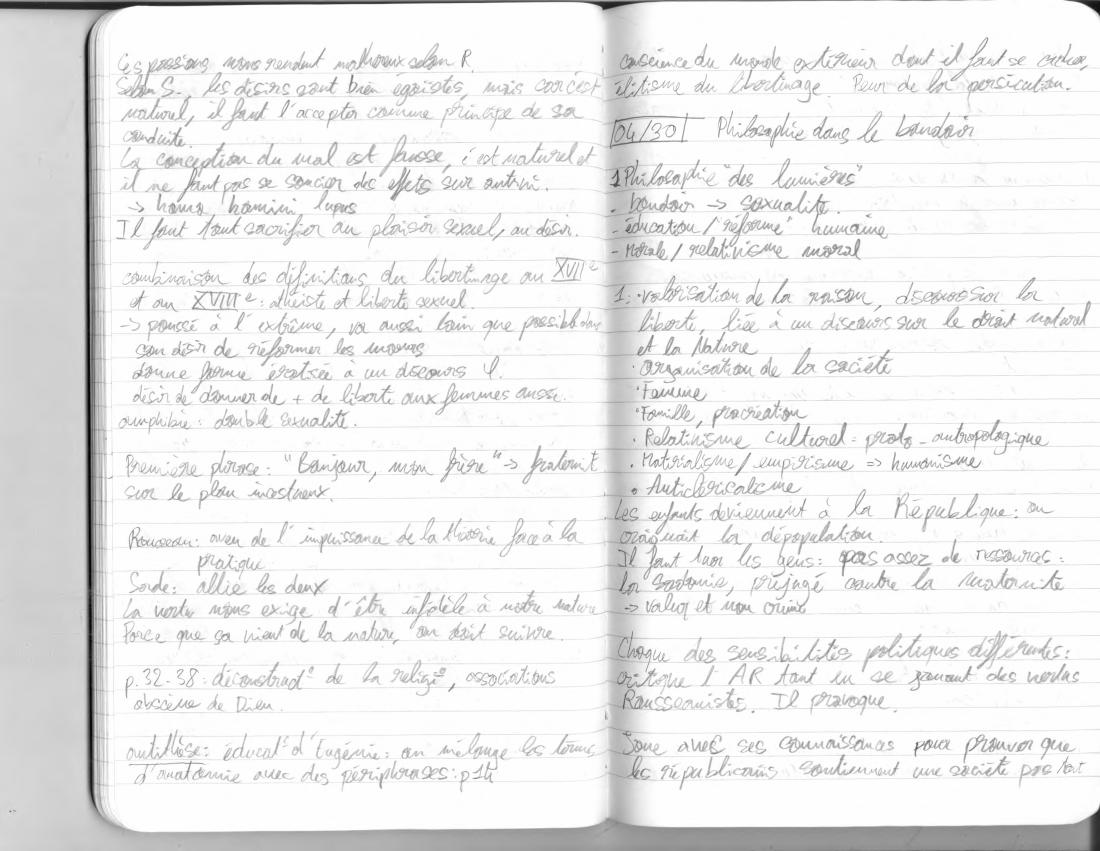 Ces passions nous rendent malheureux selon R.
Selon S. les désirs sont bien égoïstes, mais car c'est
naturel, il faut l'accepter comme principe de sa
conduite.
La conception du mal est fausse, c'est naturel et
il ne faut pas se soucier des effets sur autrui.
→ homo homini lupus
Il faut tout sacrifier au plaisir sexuel, au désir.
combinaison des définitions du libertinage au XVIIe
et au XVIIIe : athéiste et liberté sexuel.
→ poussé à l'extrême, va aussi loin que possible dans
son désir de réformer les mœurs
donne forme érotisée à un discours φ.
désir de donner de + de liberté aux femmes aussi.
amphibie : double sexualité.
Première phrase : "Bonjour, mon frère" → fraternit
sur le plan incestueux.
Rousseau : aveu de l'impuissance de la théorie face à la
pratique
Sade : allie les deux
La vertu nous exige d'être infidèle à notre nature
Parce que ça vient de la nature, on doit suivre.
p.32-38 : déconstructº de la religº, associations
obscène de Dieu.
antithèse : éducatº d'Eugénie : on mélange les termes
d'anatomie avec des périphrases : p14
conscience du monde extérieur dont il faut se cacher,
élitisme du libertinage. Peur de la persécution.
04/30 Philosophie dans le boudoir
1 Philosophie "des lumières"
- boudoir → sexualité.
- éducation / "réforme" humaine
- Morale / relativisme moral
1 : · valorisation de la raison, discours sur la
liberté, liée à un discours sur le droit naturel
et la Nature
· organisation de la société
· Femme
· Famille, procréation
· Relativisme culturel : proto-antropologique
· Matérialisme / empirisme => humanisme
· Anticléricalisme
Les enfants deviennent à la République : on
craignait la dépopulation.
Il faut tuer les gens : pas assez de ressources :
la Sodomie, préjugé contre la maternité
→ et non crime
Choque des sensibilités politiques différentes :
critique l'AR tout en se jouant des vertus
Rousseauistes. Il provoque.
Joue avec ses connaissances pour prouver que
les républicains soutiennent une société pas tout